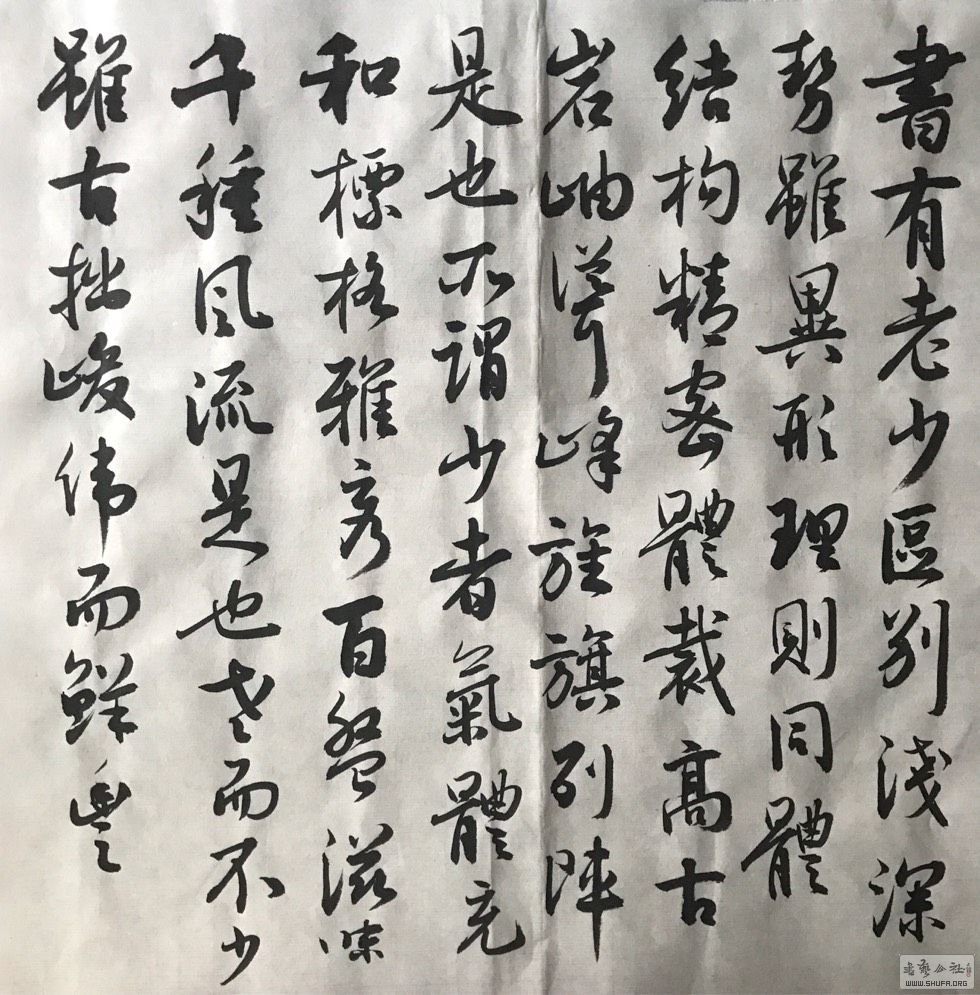 書有老少區別淺深
勢雖異形理則同體
結构精密體裁高古
岩岫聳峰旌旗列陣
是也所謂少者氣體充
和標格雅秀百盤滋味
千種風流是也老而不少
雖古拙峻偉而鮮豐
書藝公社
WWW.SHUFA.ORG